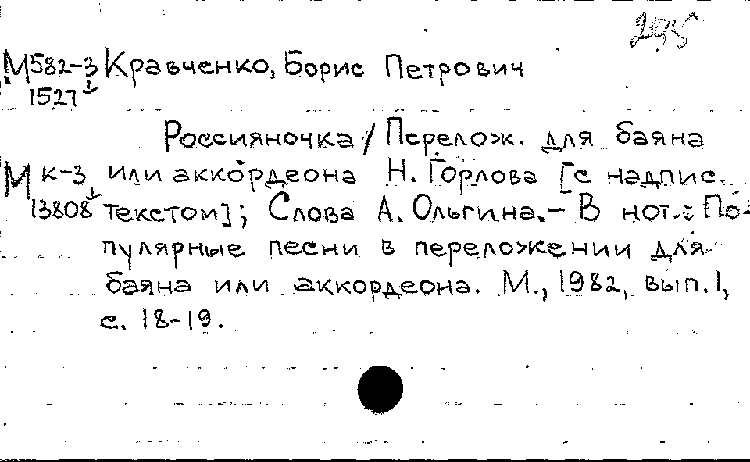 295
М582-3 Кравченко, Борис Петрович
1527
Россияночка / Перелож. для баяна
М к-3 или аккордеона Н. Горлова [с надпис.
13808 текстом]; Слова А. Ольгина. – В нот.: По-
пулярные песни в переложении для
баяна или аккордеона. М., 1982, вып. 1,
с. 18-19.